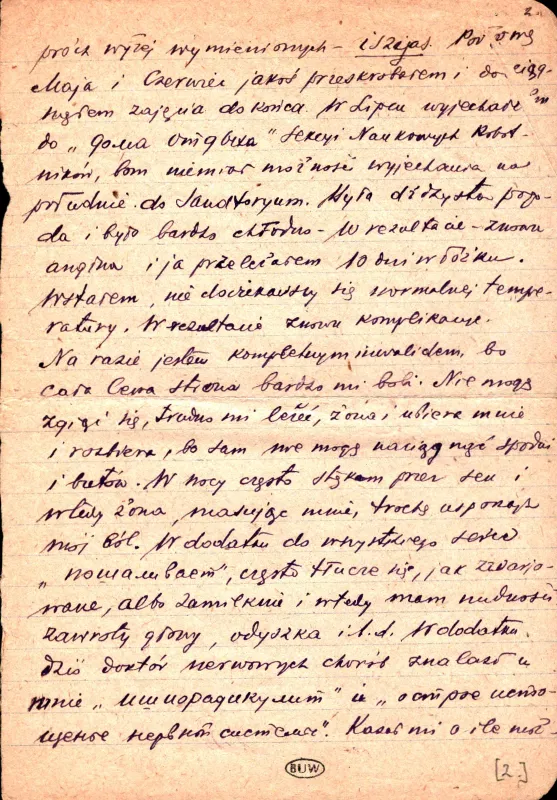 2.
prócz wyżej wymienionych – iszjas. Pow
Maja i Czerwiec jakoś przeskrobałem i do ciąg-
nąłem zajęcia do końca. W Lipcu wyjechałem
do „дома отдыха" Sekcyi Naukowych Robot-
ników, bom niemiał możność wyjechania na
południe do Sanatoryum. Była dżdżysta pogo-
da i było bardzo chłodno – W rezultacie – znowu
angina i ja przeleżałem 10 dni w łóżku.
Wstałem, nie doczekawszy się normalnej tempe-
ratury. W rezultacie znowu komplikacje.
Na razie jestem kompletnym inwalidem, bo
cała lewa strona bardzo mi boli. Nie mogę
zgiąć się, trudno mi leżeć, żona i ubiera mnie
i rozbiera, bo sam nie mogę naciągnąć spodni
i butów. W nocy często stękam przez sen i
wtedy żona, masując mnie, trochę uspokaja
mój ból. W dodatku do wszystkiego serce
„пошаливает", często tłucze się, jak zwarjo-
wane, albo zamilknie i wtedy mam nudności
zawroty głowy, odyszka i t. d. W dodatku
dziś doktór nerwowych chorób znalazł u
mnie „ишиорадикулит" и „острое исто-
щение нервной системы". Kazał mi o ile moż-
BUW
[2.]